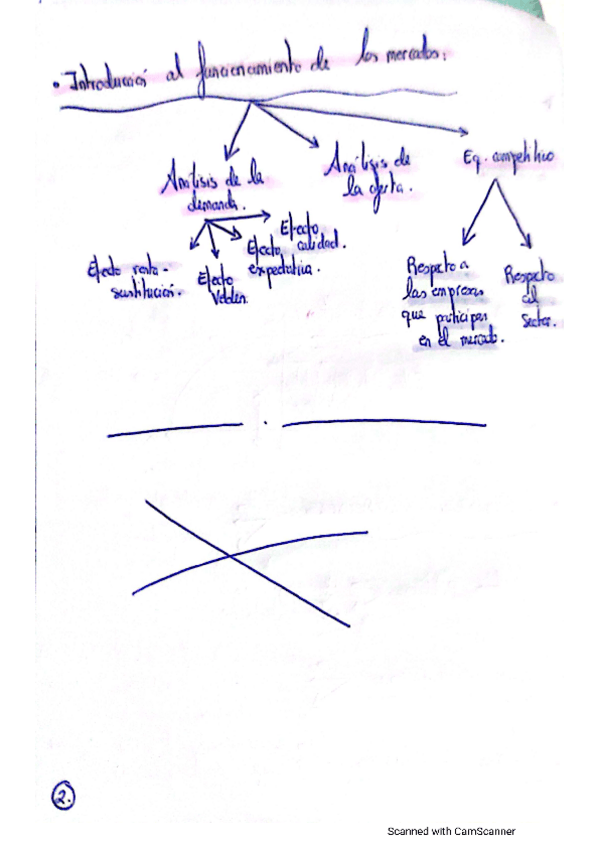 • Introducción al funcionamiento de los mercados:
Análisis de la
demanda.
Análisis de
la oferta.
Eq. competitivo
Efecto renta-
sustitución.
Efecto
Veblen.
Efecto
expectativa.
Efecto
calidad.
Respecto a
las empresas
que participan
en el mercado.
Respecto
al
Sector.
2.
Scanned with CamScanner